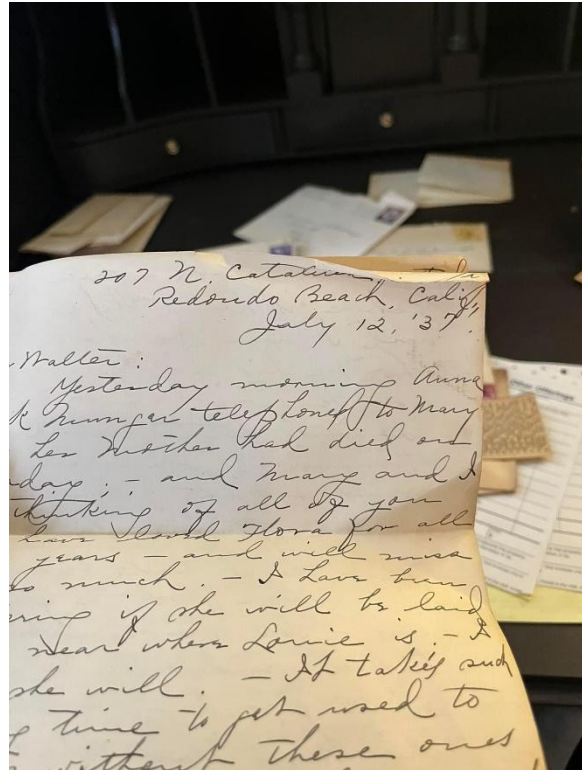 207 N. Catalina
Redondo Beach, Calif.
July 12, '37.
Walter:
Yesterday morning Anna
k Mungar telephoned to Mary
her mother had died on
day; - and Mary and I
thinking of all of you
have loved Flora for all
years - and will miss
so much. - I have been
ring if she will be laid
near where Lonie is. - I
she will. - It takes such
g time to get used to
without these ones